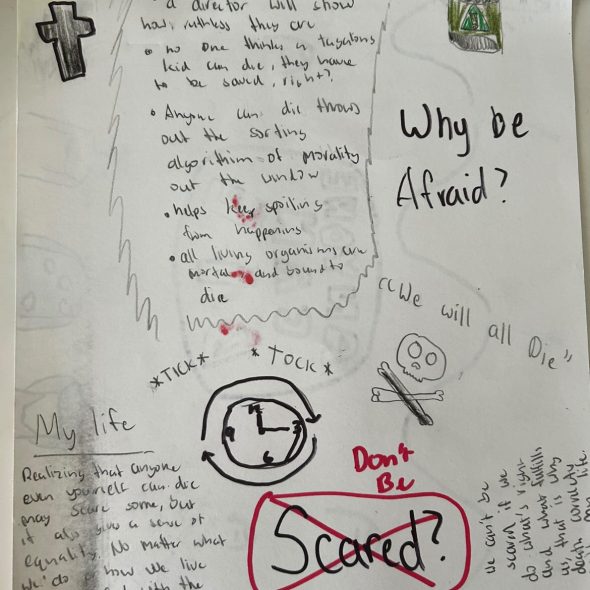 a director will show
how ruthless they are
• no one thinks a
kid can die, they have
to be saved, right?
• Anyone can die throws
out the sorting
algorithim of morality
out the window
• helps keep spoiling
from happening
• all living organisms are
mortal and bound to
die
Why be
Afraid?
"We will all Die"
*TICK* *TOCK*
12
3
6
9
My life
Realizing that anyone
even yourself can die
may scare some, but
it also give a sense of
equality. No matter what
we do or how we live
with the
Don't
Be
Scared?
We can't be
scared if we
do what's right
and what fulfills
us, that is why
death
life.